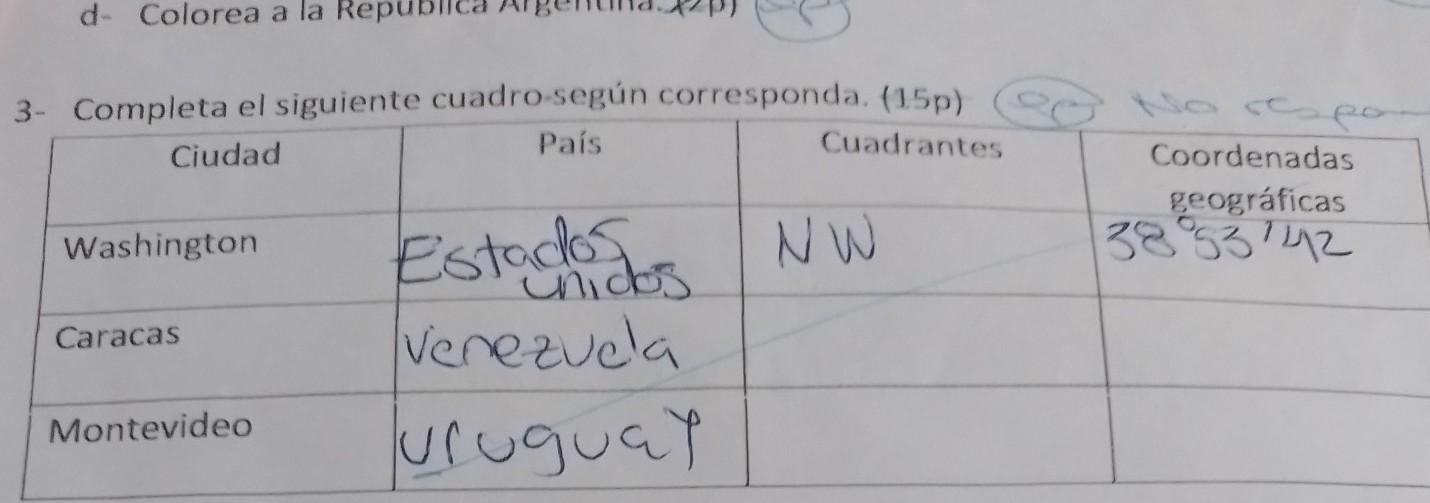 d- Colorea a la República Argentina. (2p)
3- Completa el siguiente cuadro según corresponda. (15p) No
Ciudad País Cuadrantes Coordenadas
geográficas
Washington Estados unidos NW 38°53'42
Caracas Venezuela
Montevideo uruguay